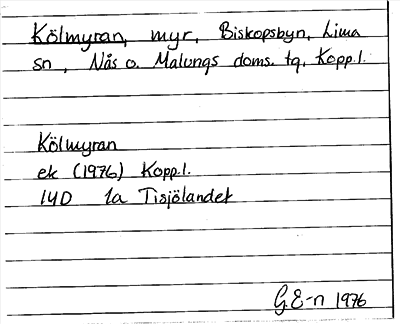 Kölmyran, myr, Biskopsbyn, Lima
sn, Nås o. Malungs doms. tg, Kopp.l.
Kölmyran
ek (1976) Kopp.l.
14D 1a Tisjölandet
G E-n 1976